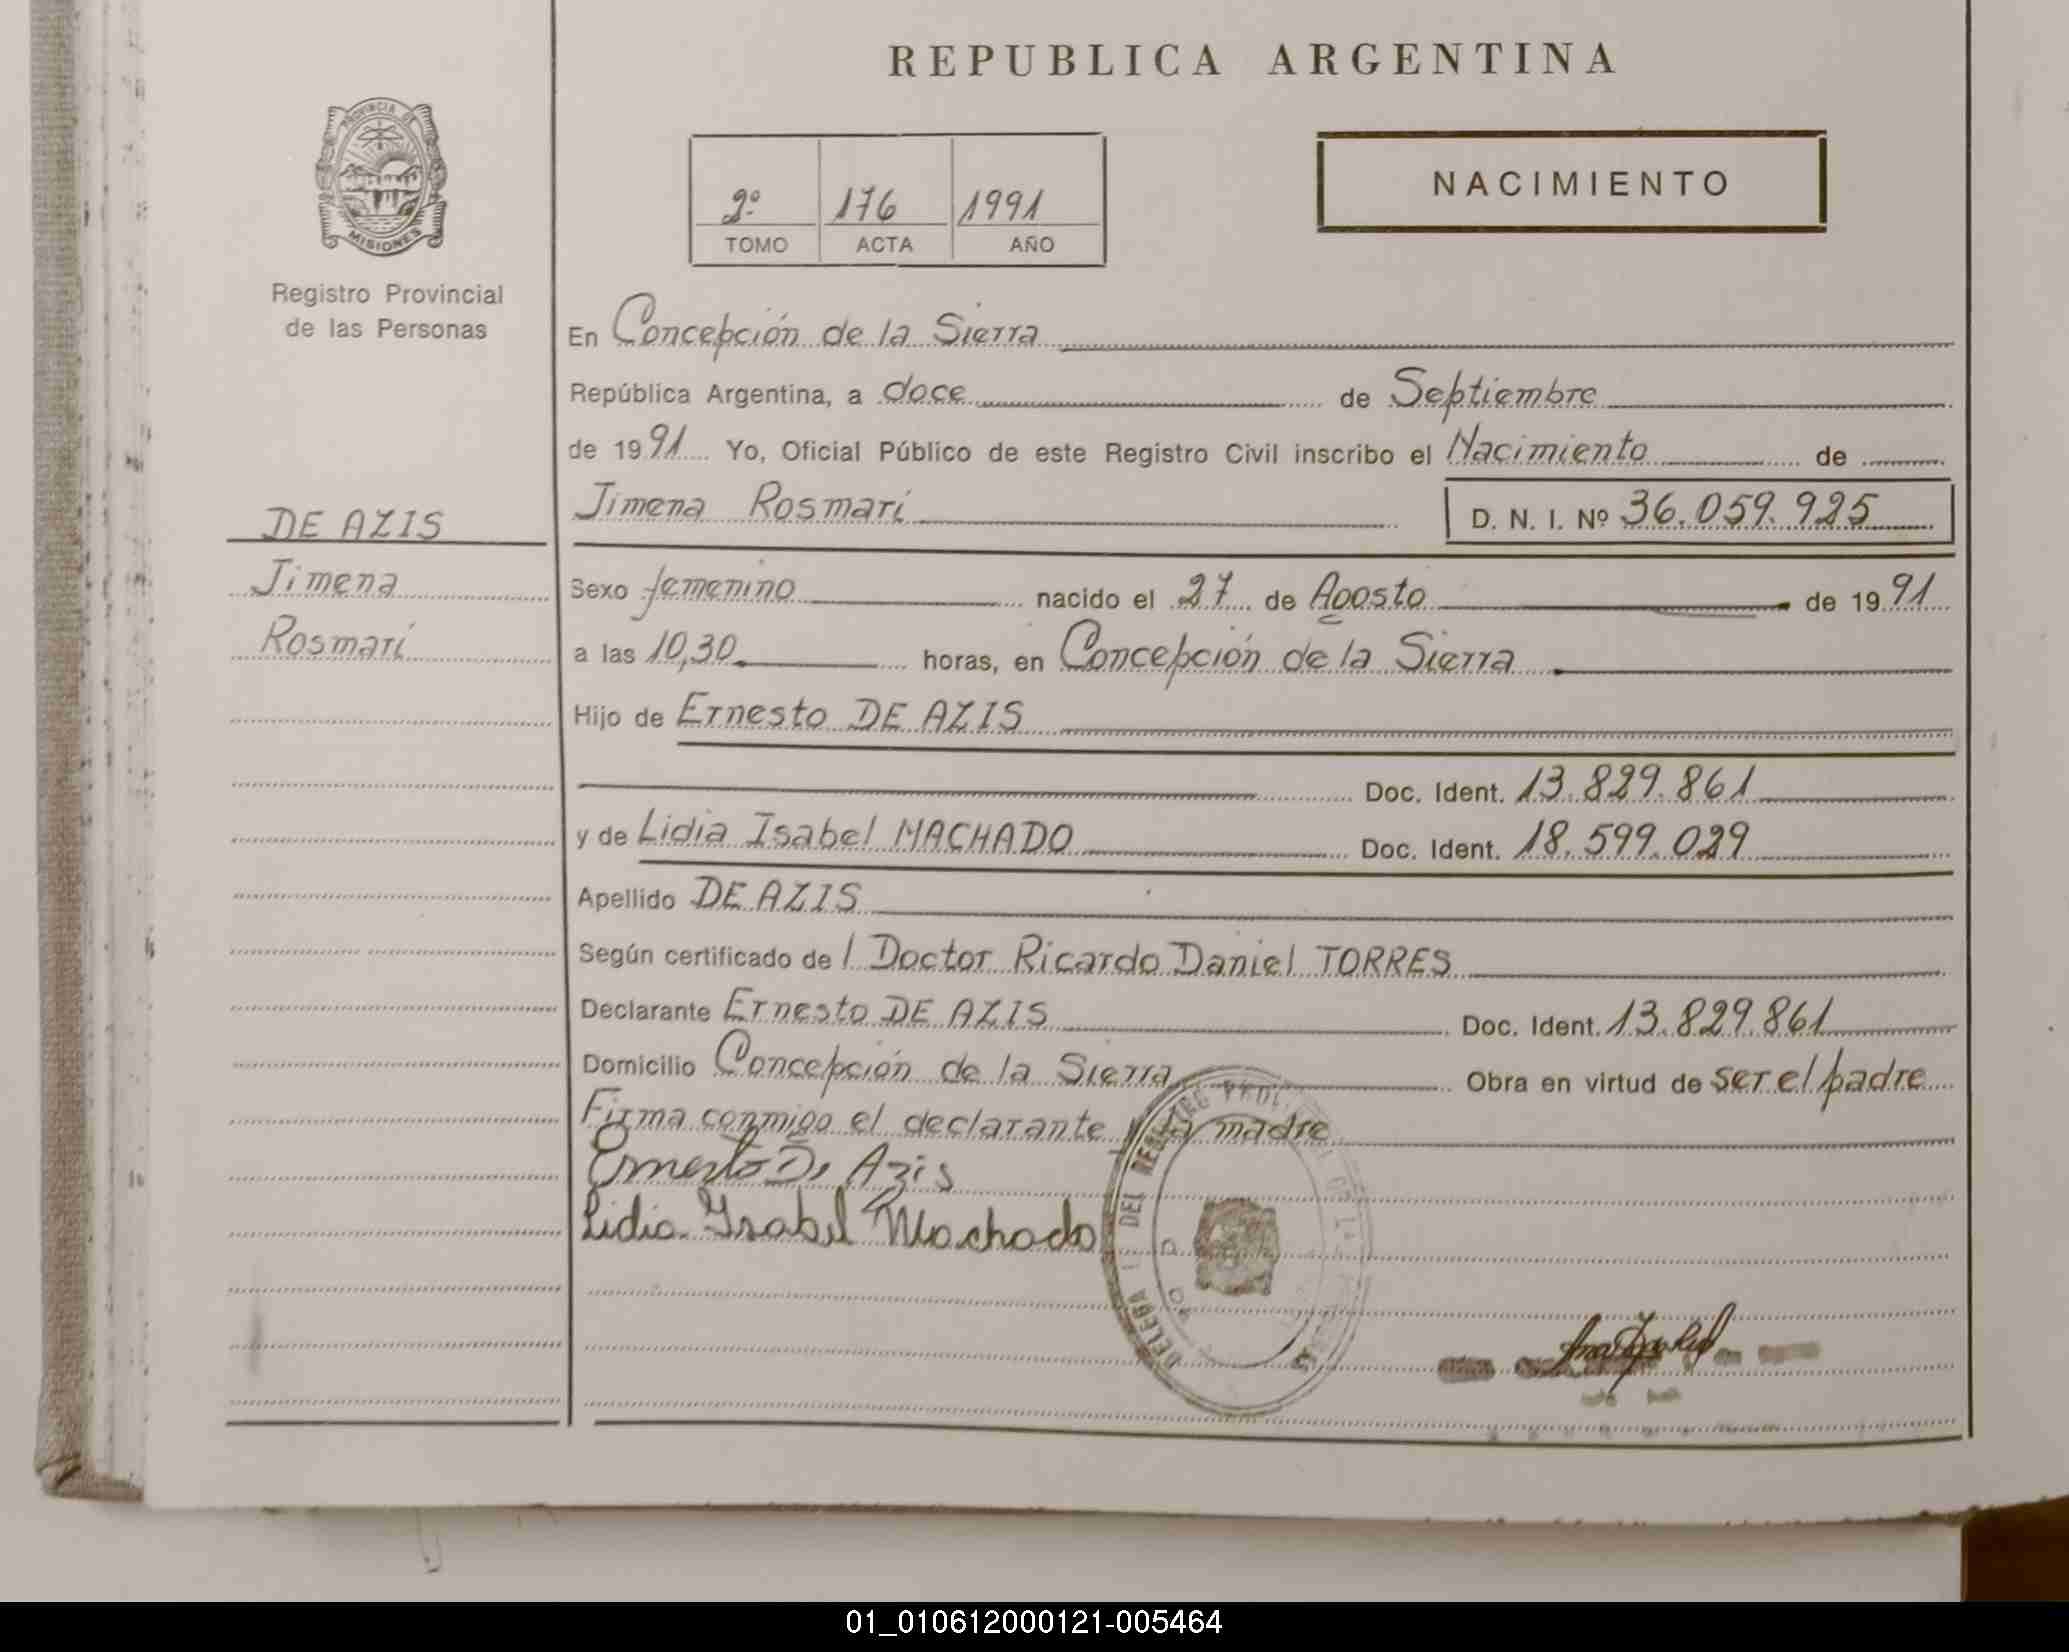 REPUBLICA ARGENTINA
PROVINCIA DE
MISIONES
Registro Provincial
de las Personas
2º 176 1991
TOMO ACTA AÑO
NACIMIENTO
En Concepción de la Sierra
República Argentina, a doce de Septiembre
de 1991 Yo, Oficial Público de este Registro Civil inscribo el Nacimiento de
Jimena Rosmarí D. N. I. Nº 36.059.925
DE AZIS
Jimena
Rosmarí
Sexo femenino nacido el 27 de Agosto de 1991
a las 10,30 horas, en Concepción de la Sierra
Hijo de Ernesto DE AZIS
Doc. Ident. 13.829.861
y de Lidia Isabel MACHADO Doc. Ident. 18.599.029
Apellido DE AZIS
Según certificado de l Doctor Ricardo Daniel TORRES
Declarante Ernesto DE AZIS Doc. Ident. 13.829.861
Domicilio Concepción de la Sierra Obra en virtud de ser el padre
Firma conmigo el declarante y la madre
Ernesto De Azis
Lidia Isabel Machado
DEL REGISTRO
01_010612000121-005464